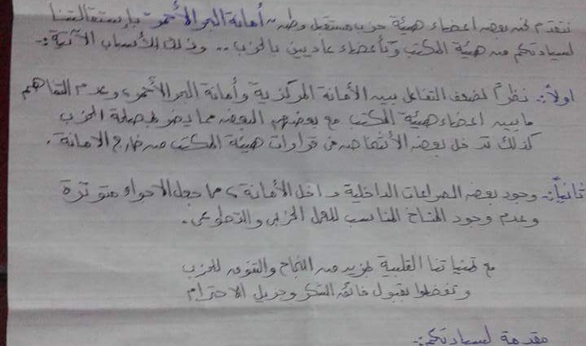 نتقدم نحن بعض أعضاء هيئة حزب مستقبل وطن "أمانة البحر الأحمر" بإستقالتنا
لسيادتكم من هيئة المكتب وكأعضاء عاديين بالحزب .. وذلك للأسباب الآتية:-
أولاً:- نظراً لضعف التفاعل بين الأمانة المركزية وأمانة البحر الأحمر، وعدم التفاهم
ما بين أعضاء هيئة المكتب مع بعضهم البعض مما يضر لمصلحة الحزب
كذلك تدخل بعض الأشخاص في قرارات هيئة المكتب من خارج الأمانة.
ثانياً:- وجود بعض الصراعات الداخلية داخل الأمانة، مما جعل الاجواء متوترة
وعدم وجود المناخ المناسب للعمل الحزبي والتطوعي.
مع تمنياتنا القلبية لمزيد من النجاح والتفوق للحزب
وتفضلوا بقبول فائق الشكر وجزيل الاحترام
مقدمة لسيادتكم:-